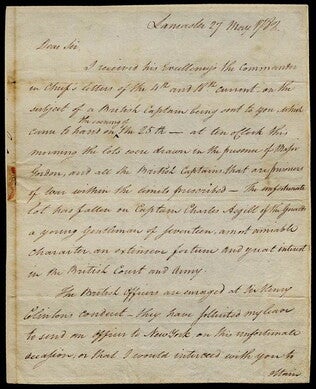 Lancaster 27 May 1782.
Dear Sir
I received his Excellency the Commander
in Chief's letters of the 4th and 18th current on the
subject of a British Captain being sent to you which
the evening of
came to hand on the 25th — at ten oClock this
morning the lots were drawn in the presence of Major
Gordon, and all the British Captains that are prisoners
of War within the limits prescribed — the unfortunate
lot has fallen on Captain Charles Asgill of the Guards
a young Gentleman of seventeen, a most amiable
character an extensive fortune and great interest
in the British Court and Army.
The British Officers are enraged at Sir Henry
Clintons conduct — They have solicited my leave
to send an Officer to New York on this unfortunate
occasion, or that I would interceed with you to
obtain